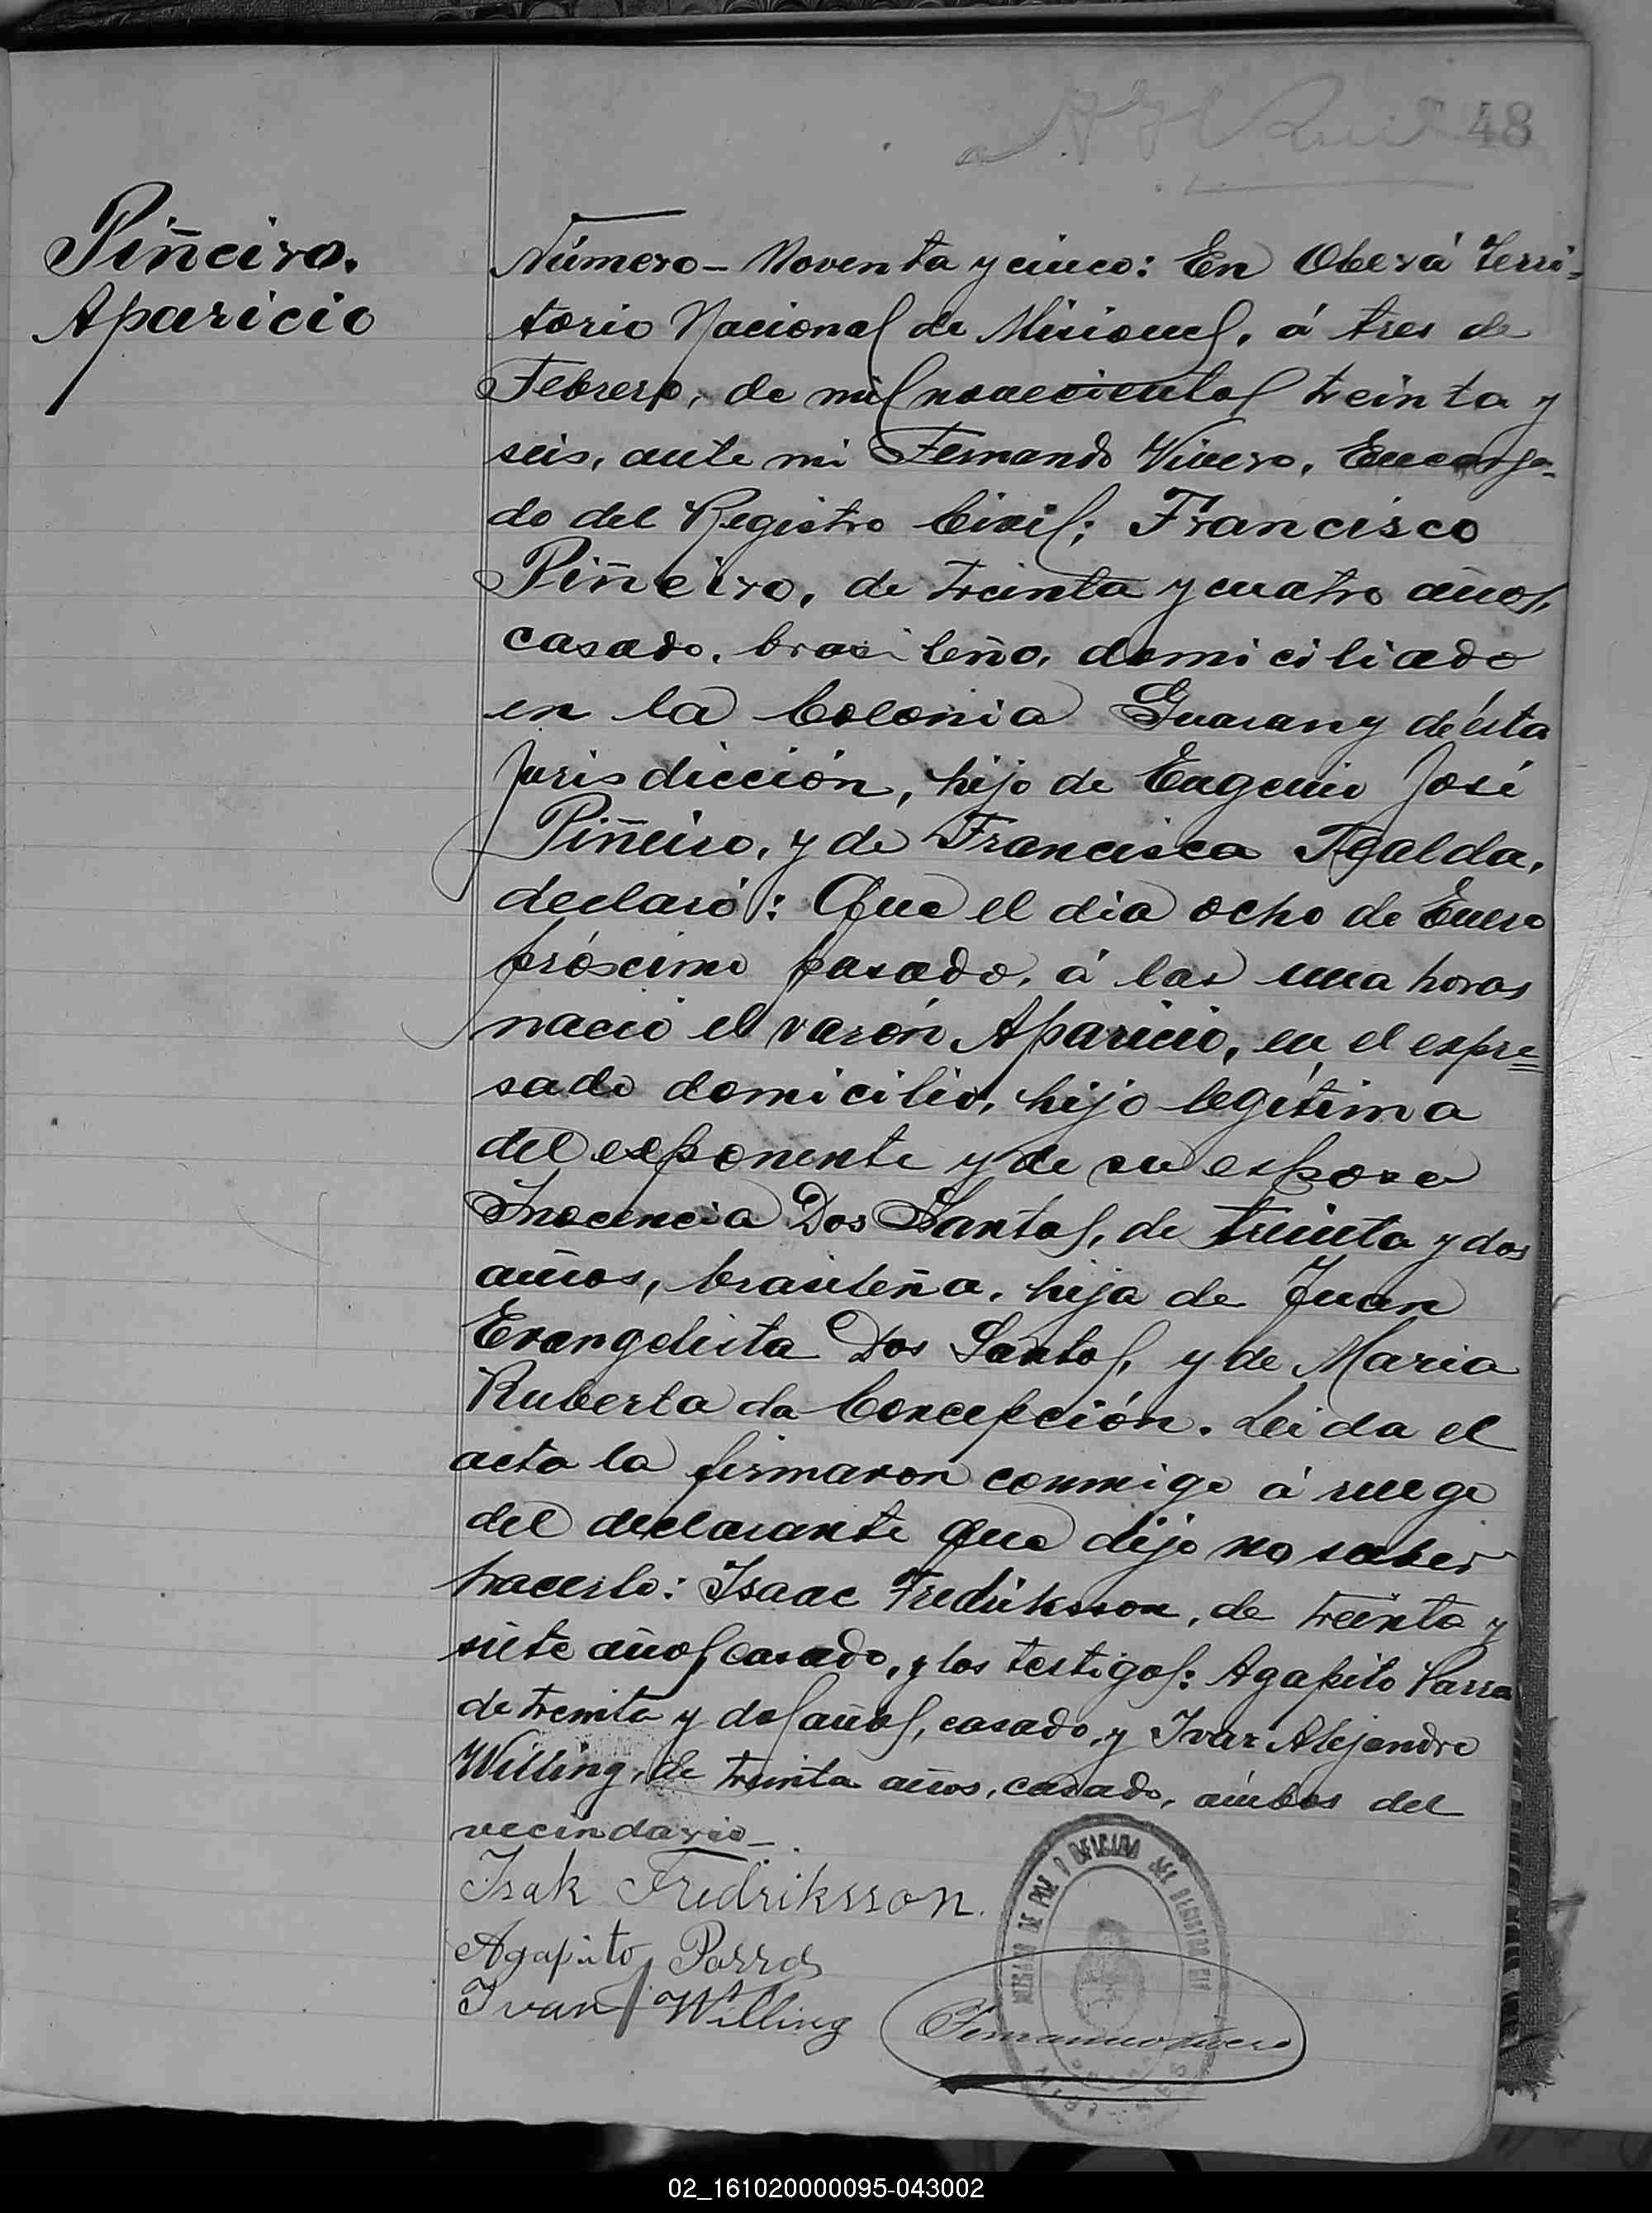 48
Piñeiro.
Aparicio
Número - Noventa y cinco: En Oberá Terri-
torio Nacional de Misiones, á tres de
Febrero, de mil novecientos treinta y
seis, ante mi Fernando Vivero, Encarga-
do del Registro Civil; Francisco
Piñeiro, de treinta y cuatro años,
casado, brasileño, domiciliado
en la Colonia Guarany de ésta
jurisdicción, hijo de Eugenio José
Piñeiro, y de Francisca Tealda,
declaró: Que el dia ocho de Enero
próximo pasado, á las una horas
nació el varón Aparicio, en el expre=
sado domicilio, hijo legítima
del exponente y de su esposa
Inocencia Dos Santos, de treinta y dos
años, brasileña, hija de Juan
Evangelista Dos Santos, y de Maria
Ruberta da Concepción. Leida el
acta la firmaron conmigo á ruego
del declarante que dijo no saber
hacerlo: Isaac Fredriksson, de treinta y
siete años casado, y los testigos: Agapito Parra
de treinta y dos años, casado, y Ivar Alejandro
Willing, de treinta años, casado, ámbos del
vecindario_
Isak Fredriksson.
Agapito Parra
Ivar A Willing
02_161020000095-043002